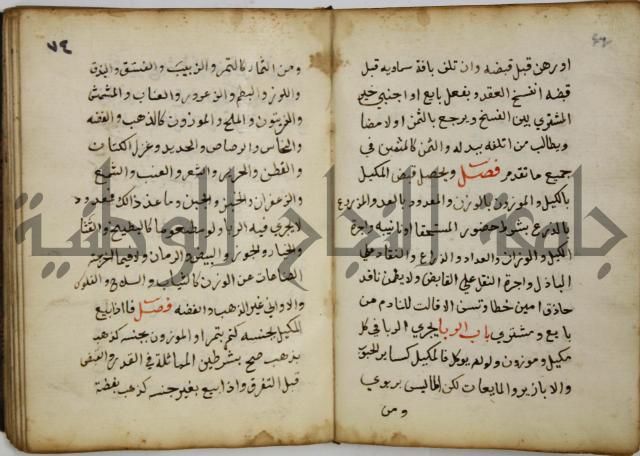 او رهن قبل قبضه وان تلف بافة سماويه قبل
قبضه انفسخ العقد وبفعل بايع او اجنبي خير
المشتري بين الفسخ ويرجع بالثمن او الامضا
ويطالب من اتلفه ببدله والثمن كالمثمن في
جميع ما تقدم فصل ويحصل قبض المكيل
بالكيل والموزون بالوزن والمعدود بالعد والمزروع
بالذرع بشرط حضور المستحق او نايبه واجرة
الكيل والوزان والعداد والذراع والنقاد علي
الباذل واجرة النقل علي القابض ولا يضمن ناقد
حاذق امين خطا وتسن الاقالت للنادم من
بايع ومشتري باب الربا يجري الربا في كل
مكيل وموزون ولو لم يوكل فالمكيل كساير الحبوب
والابازير والمايعات لكن الما ليس بربوي
ومن
٧٤
ومن الثمار كالتمر والزبيب والفستق والبندق
واللوز والبطم والزعرور والعناب والمشمش
والزيتون والملح والموزون كالذهب والفضه
والنحاس والرصاص والحديد وغزل الكتان
والقطن والحرير والشعر والعنب والشمع
والزعفران والخبز والجبن وما عدا ذلك فمعدود
لا يجري فيه الربا ولو مطعوما كالبطيخ والقثا
والخيار والجوز والبيض والرمان ولا فيما اخرجته
الصناعات عن الوزن كالثياب والسلاح والفلوس
والاواني غير الذهب والفضه فصل فاذا بيع
المكيل بجنسه كتمر بتمر او الموزون بجنسه كذهب
بذهب صح بشرطين المماثلة في القدر والقبض
قبل التفرق واذا بيع بغير جنسه كذهب بفضة
جامعة النجاح الوطنية